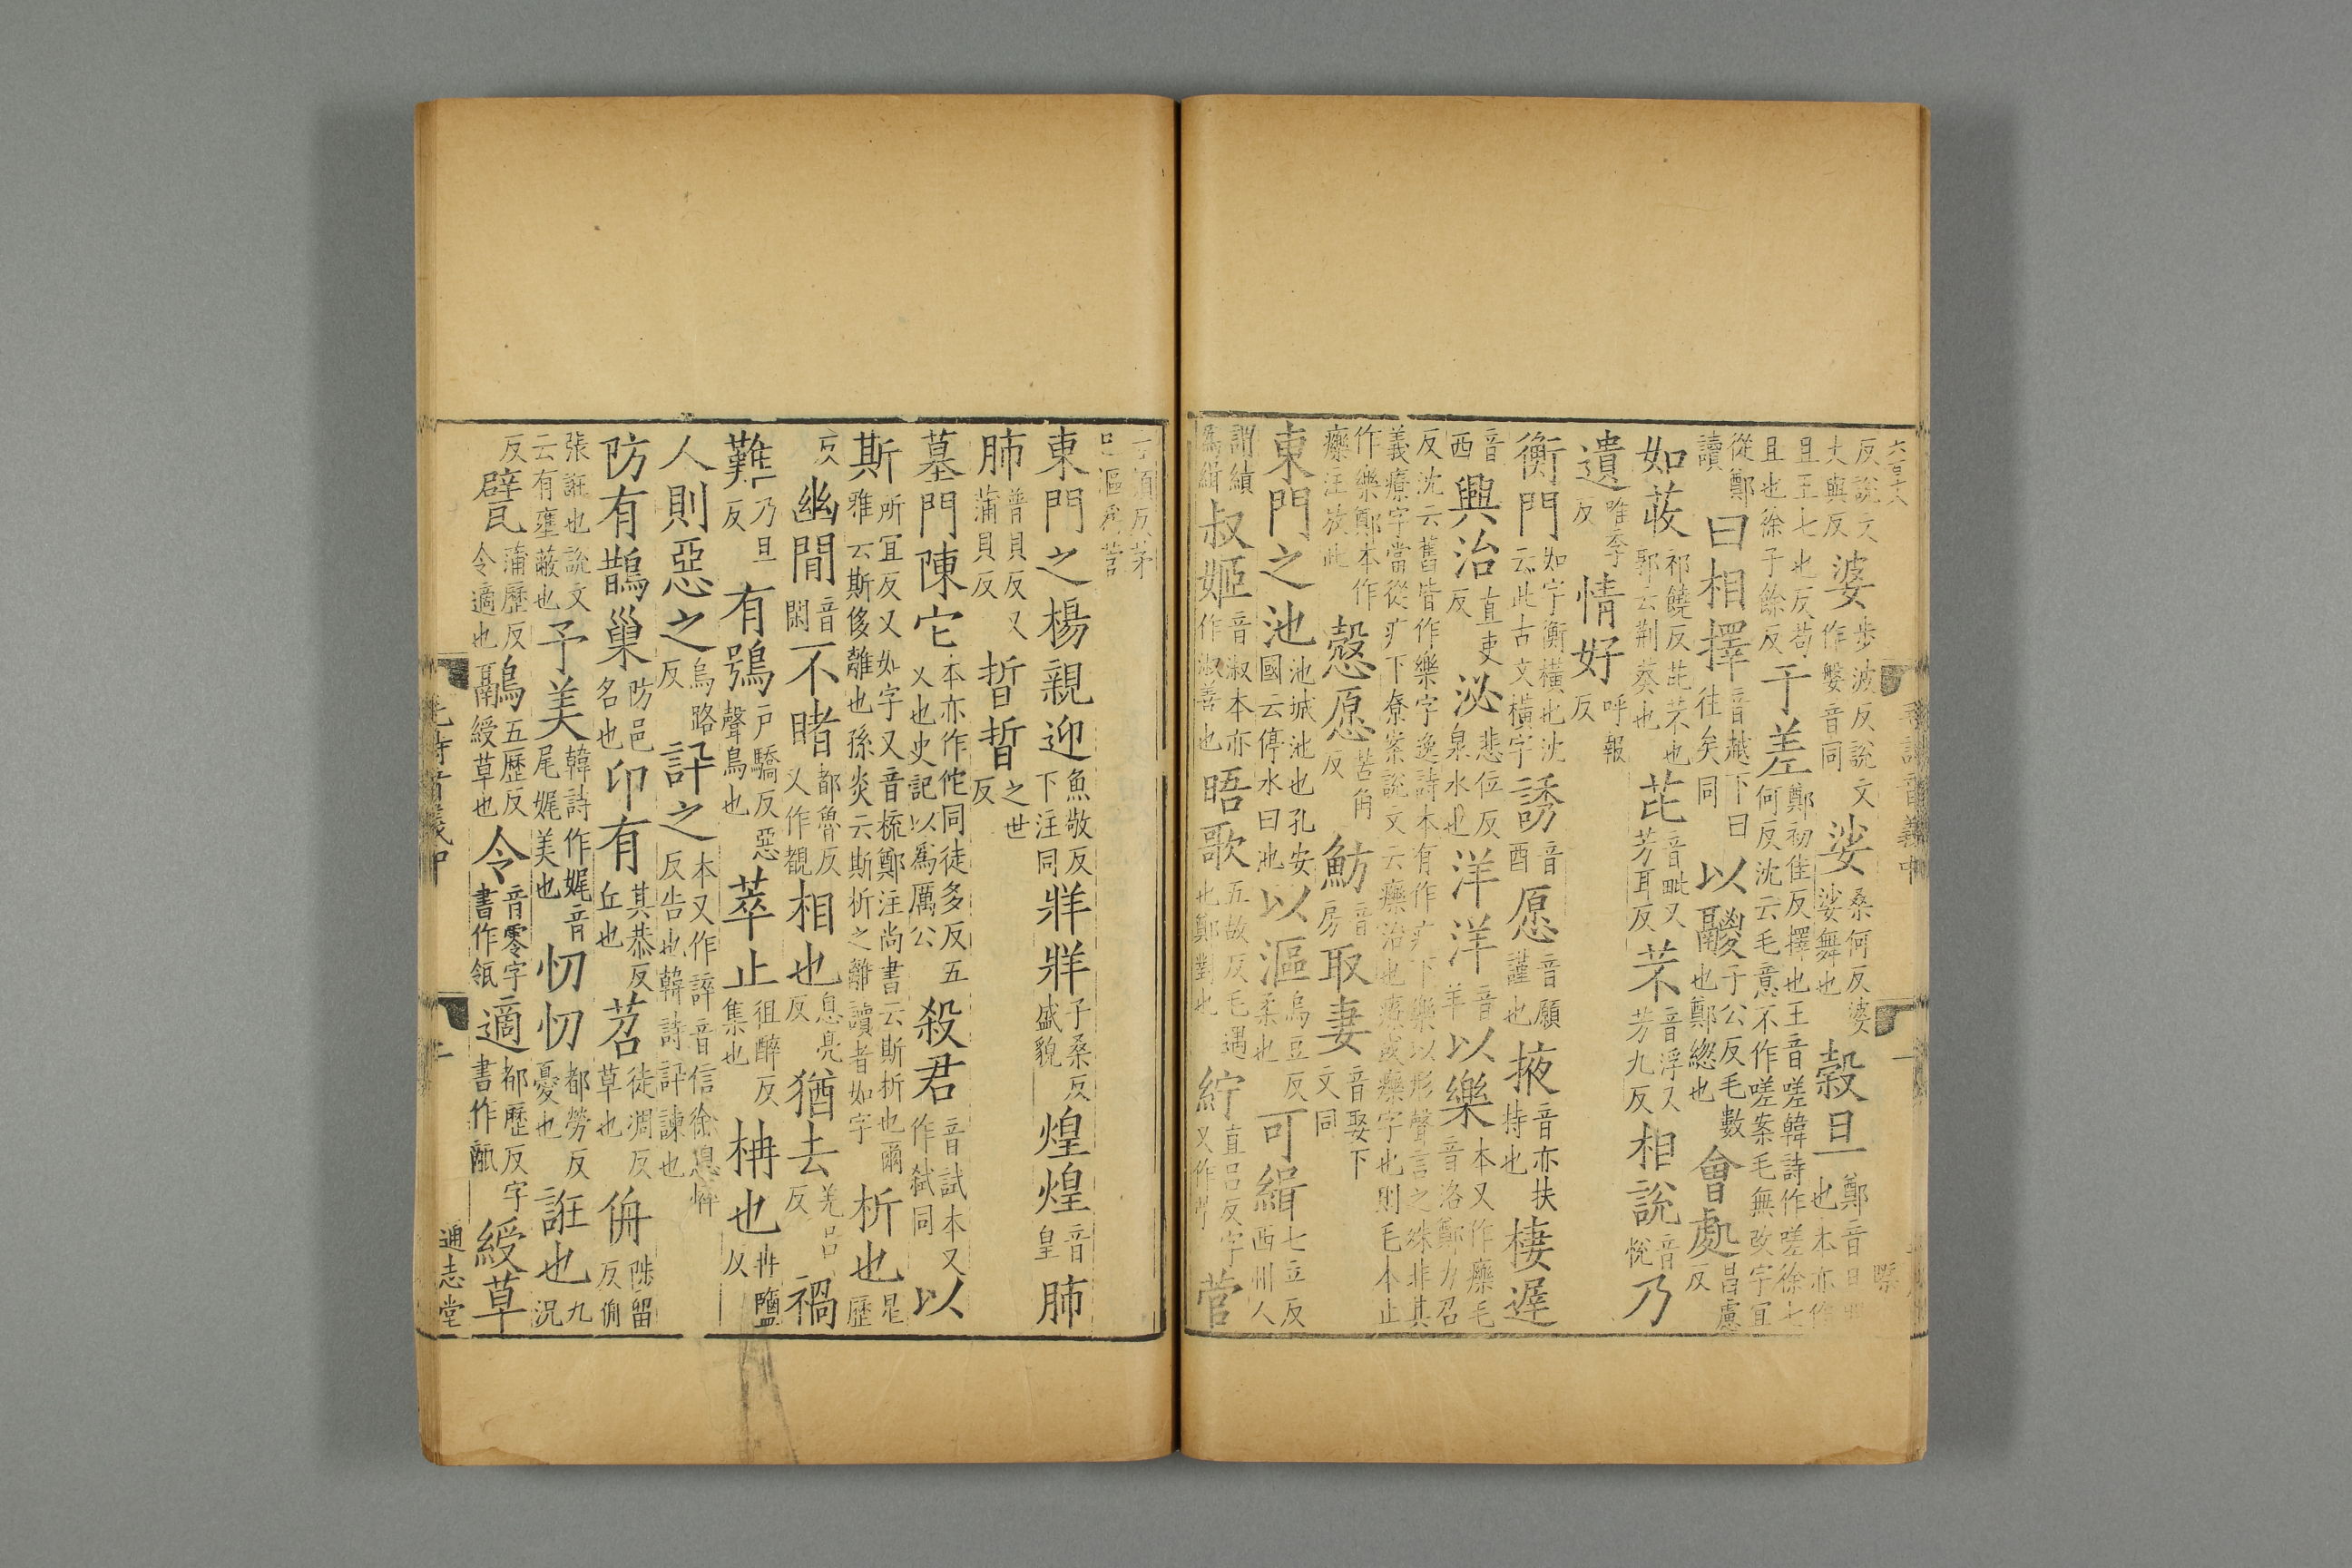 反說文大與反婆步波反說文作媻音同娑桑何反婆娑舞也榖旦鄭音旦也本亦作
且王七也反苟且也徐子餘反于差鄭初佳反擇也王音嗟韓詩作嗟徐七何反沈云毛意不作嗟案毛無改字宜
從鄭讀曰相擇音越下曰往矣同以鬷子公反毛數也鄭緫也會處昌慮反
如荍祁饒反芘芣也郭云荆葵也芘音毗又芳耳反芣音浮又芳九反相說音悅乃
遺唯季反情好呼報反
衡門如字衡橫也沈云此古文橫字誘音酉愿音願謹也掖音亦扶持也棲遲
音西興治直吏反泌悲位反泉水也洋洋音羊以樂本又作𤻲毛音洛鄭力召
反沈云舊皆作樂字逸詩本有作疒下樂以形聲言之殊非其義療字當從疒下尞案說文云𤻲治也療或𤻲字也則毛本止
作樂鄭本作𤻲注放此慤愿苦角反魴音房取妻音娶下文同
東門之池池城池也孔安國云停水曰池以漚烏豆反柔也可緝七立反西州人
謂績爲緝叔姬音淑本亦作淑善也晤歌五故反毛遇也鄭對也紵直呂反字又作菅
東門之楊親迎魚敬反下注同牂牂子桑反盛貌煌煌音皇肺
肺普貝反又蒲貝反晢晢之世反
墓門陳佗本亦作佗同徒多反五父也史記以爲厲公殺君音試本又作弑同以
斯所宜反又如字又音梳鄭注尚書云斯析也爾雅云斯侈離也孫炎云斯析之離讀者如字析也星歷
反幽閒音閑不睹都魯反又作覩相也息亮反猶去羌呂反禍
難乃旦反有鴞户驕反惡聲鳥也萃止徂醉反集也柟也冉鹽反
人則惡之烏路反訊之本又作誶音信徐息悴反告也韓詩訊諫也
防有鵲巢防邑名也卭有其恭反丘也苕徒凋反草也侜陟留反侜
張誑也說文云有壅蔽也予美韓詩作娓音尾娓美也忉忉都勞反憂也誑也九况
反甓蒲歷反令適也鷊五歷反綬草也令音零字書作瓴適都歷反字書作甋綬草
通志堂